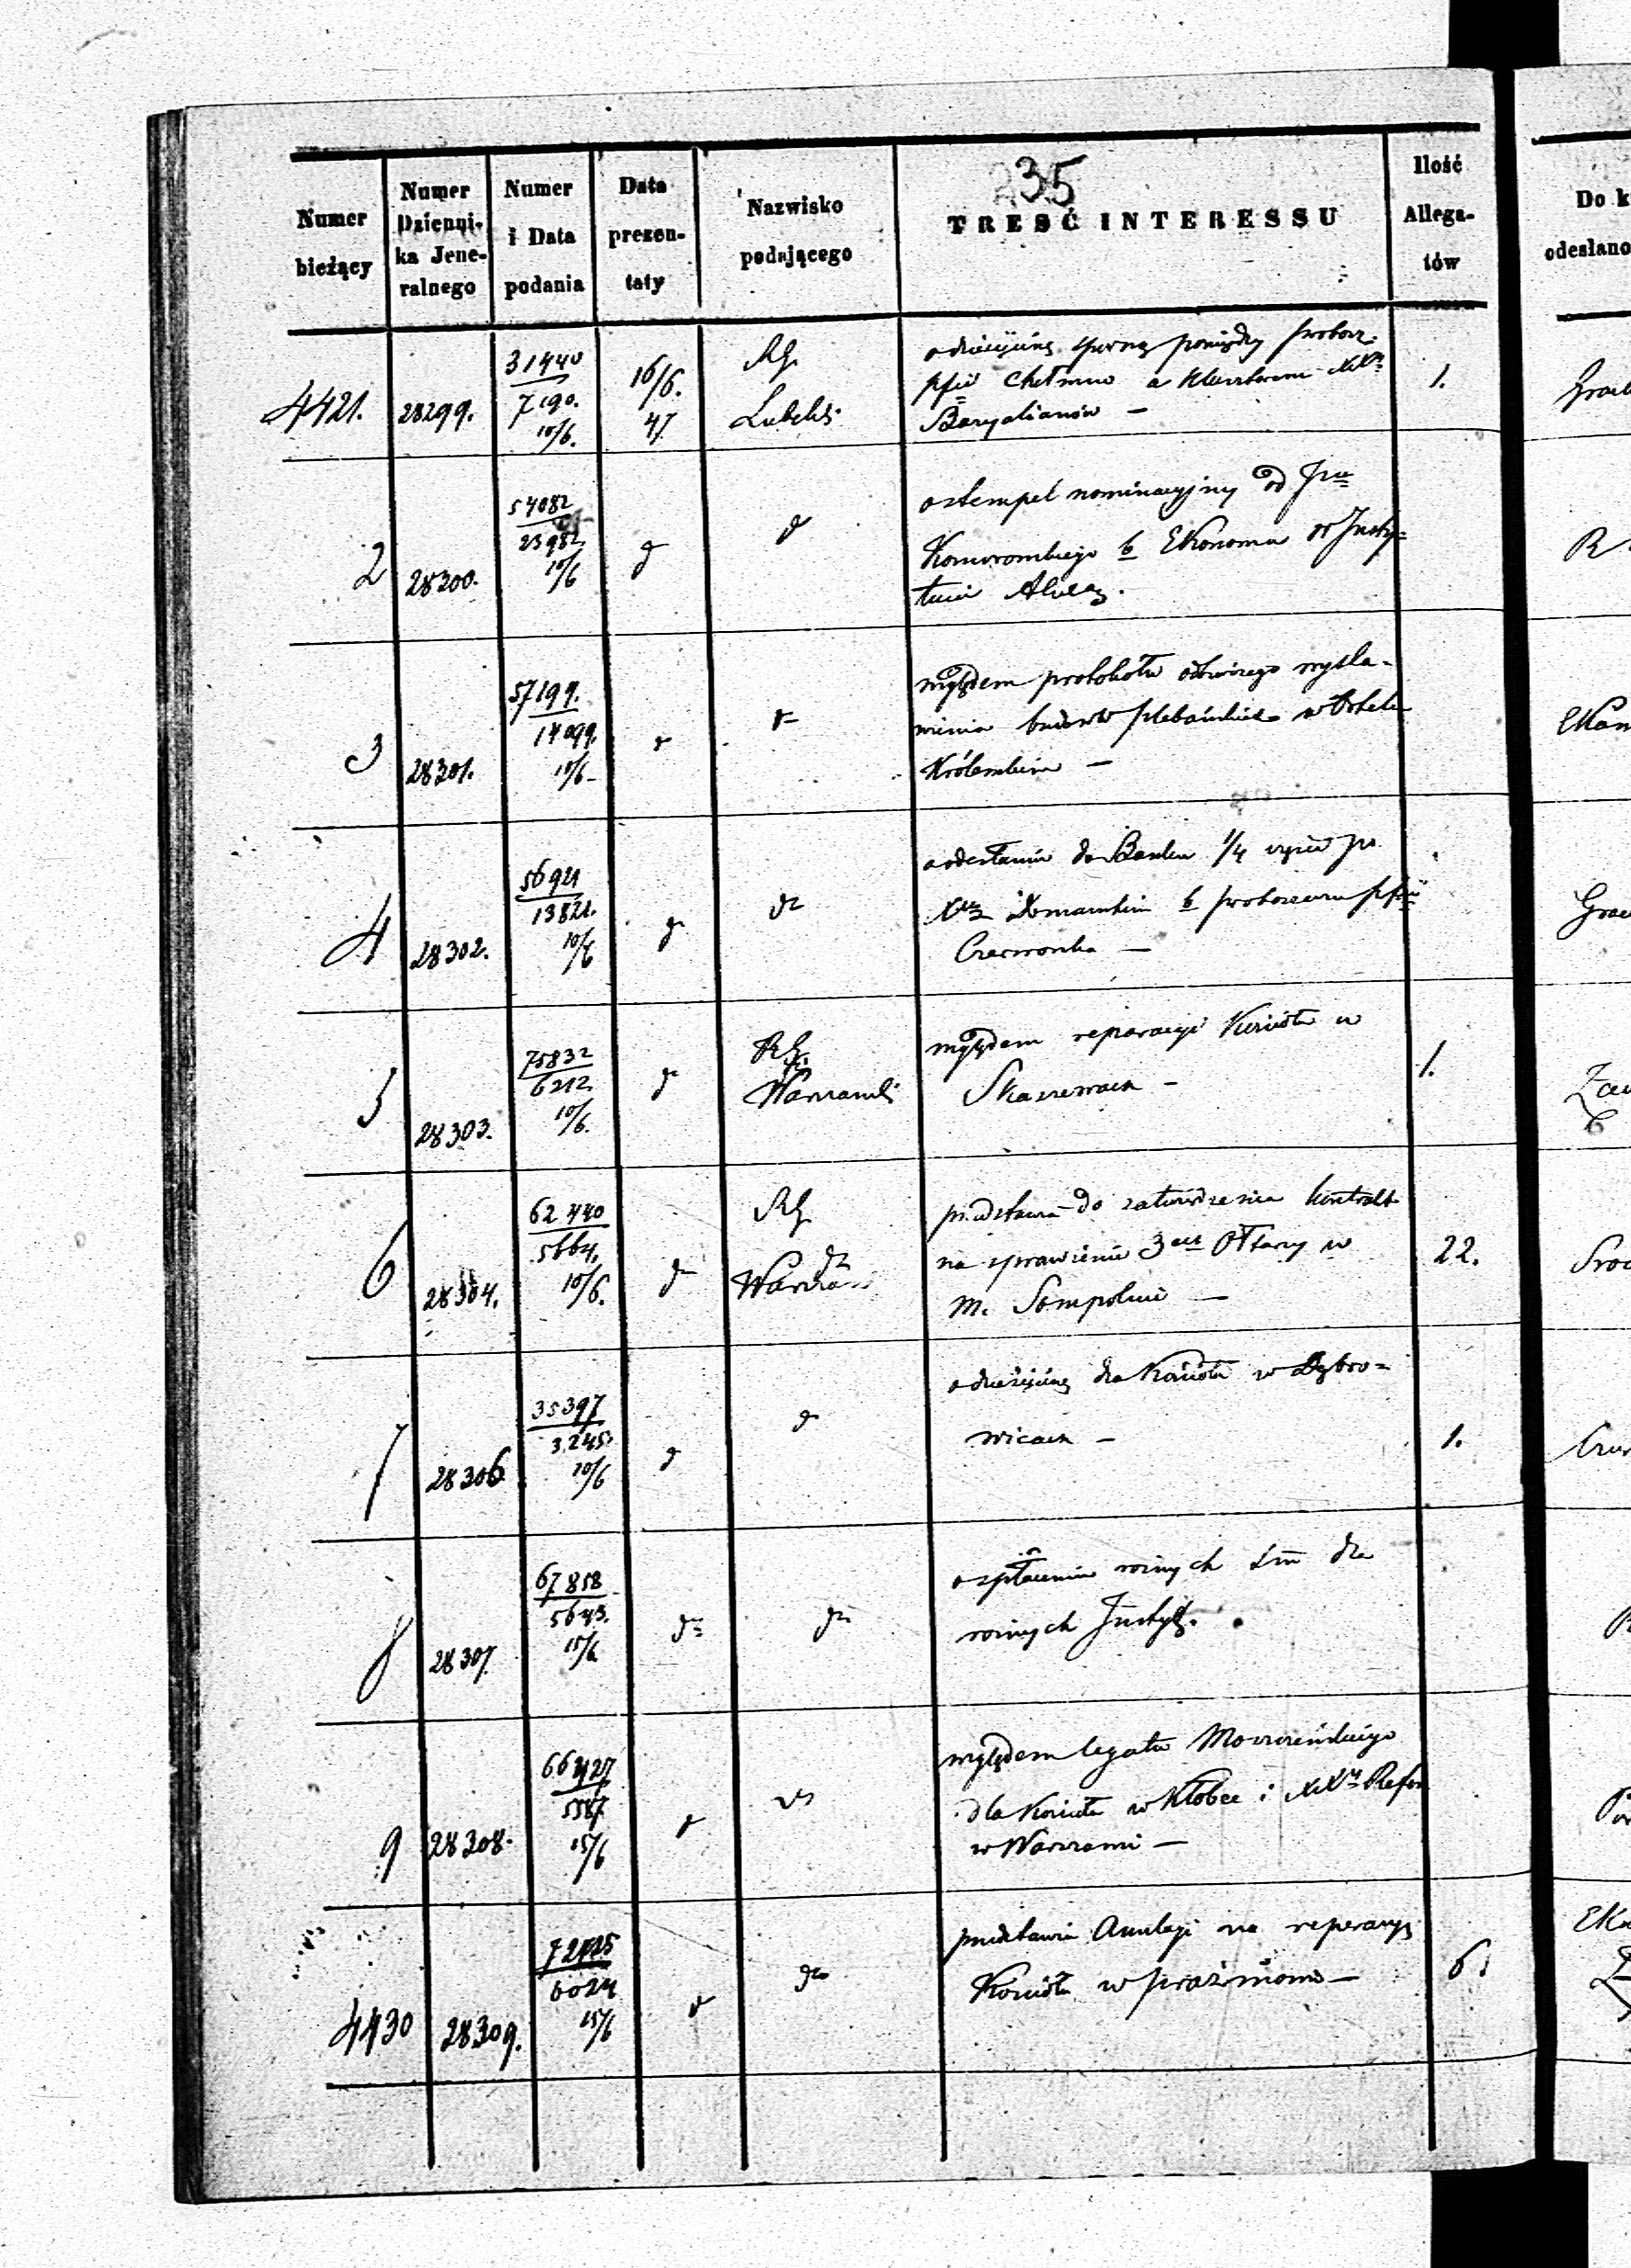 35
Numer
bieżący
Numer
Dzienni-
ka Jene-
ralnego
Numer
i Data
podania
Data
prezen-
taty
Nazwisko
podającego
TREŚĆ INTERESSU
Ilość
Allega-
tów
Do k
odesłano
4421.
28299.
31440
7190.
10/6.
16/6.
47
RG
Lubels:
o dziesięcinę sporną pomiędzy probosz.
Chełmno a Klasztorem XX
Bazylianów —
1.
2
28300.
54082
23982
10/6
d
d
o stempel nominacyjny od
b Ekonoma w Insty-
tucie
R
3
28301.
57199.
14099.
10/6
d
d
względem protokołu wysta-
wienia plebańskich w
Królewskim —
Ekon
4
28302.
56921
13821.
10/6
d
d
o odesłanie do Banku 1/4 części po
b proboszczu
Czerwonka —
5
28303.
75832
6212
10/6.
d
RG
Warszawski
względem reparacyi Kościoła w
Skaszewach —
1.
6
28304.
62440
5664.
10/6.
d
RG
Warsza
przedstawia do zatwierdzenia kontrakt
na sprawienie 3ch Ołtarzy w
m. Sompolnie —
22.
7
28306
35397
3245.
10/6
d
d
o dziesięcinę dla Kościoła w Dąbro-
wicach —
1.
8
28307.
67858
5643.
15/6
d
d
o spłacenie różnych dla
różnych Instyt.
9
28308.
66427
5587
15/6
d
d
względem legatu Moszczeńskiego
dla Kościoła w Kłobce i XX Refor
w Warszawie —
4430
28309.
6024
15/6
d
d
przedstawia na reparacyę
Kościoła w Prażmowie —
6.